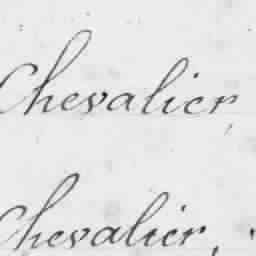 Chevalier,
Chevalier,